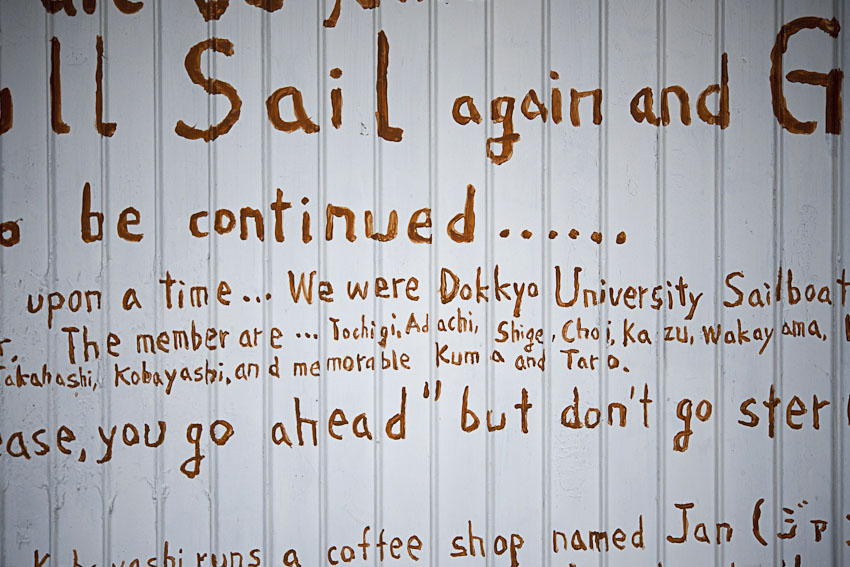 ll Sail again and G
be continued......
upon a time... We were Dokkyo University Sailboat
r. The member are ... Tochigi, Adachi, Shige, Choi, Kazu, Wakayama,
Takahashi, Kobayashi, and memorable Kuma and Taro.
ease, you go ahead" but don't go ster
Kobayashi runs a coffee shop named Jan (ジャ